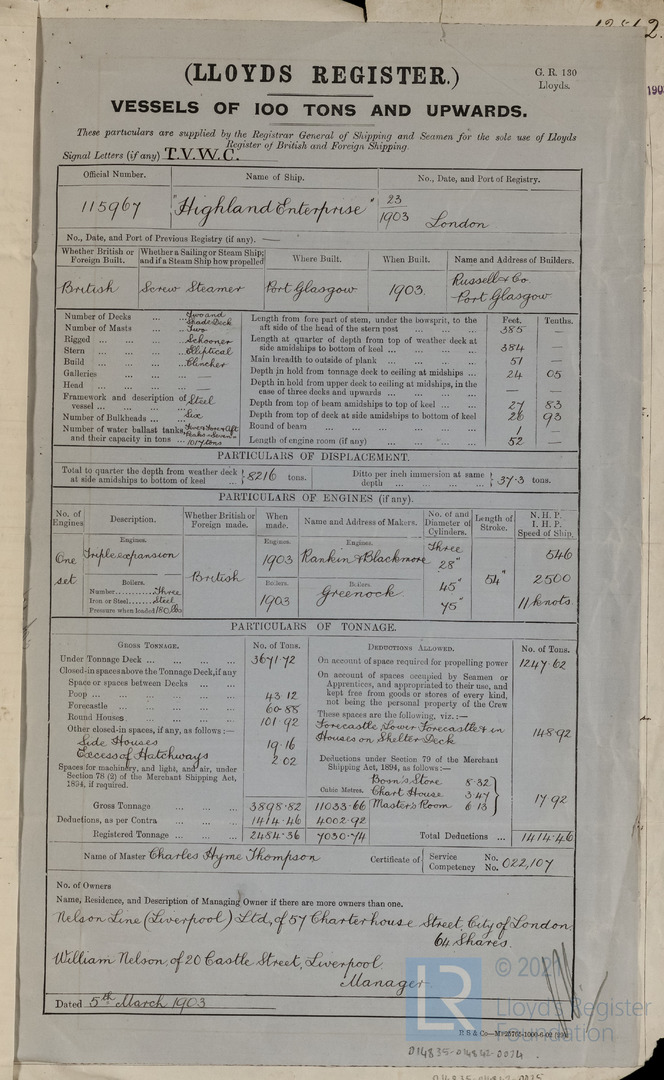 (LLOYDS REGISTER.)
G. R. 130
Lloyds.
VESSELS OF 100 TONS AND UPWARDS.
These particulars are supplied by the Registrar General of Shipping and Seamen for the sole use of Lloyds
Register of British and Foreign Shipping.
Signal Letters (if any) T.V.W.C.
Official Number. Name of Ship. No., Date, and Port of Registry.
115967 "Highland Enterprise" 23/1903 London
No., Date, and Port of Previous Registry (if any). —
Whether British or Foreign Built. Whether a Sailing or Steam Ship; and if a Steam Ship how propelled Where Built. When Built. Name and Address of Builders.
British Screw Steamer Port Glasgow 1903. Russell & Co Port Glasgow
Number of Decks ... Two and Shade Deck
Number of Masts ... Two
Rigged ... Schooner
Stern ... Elliptical
Build ... Clincher
Galleries ... —
Head ... —
Framework and description of vessel ... Steel
Number of Bulkheads ... Six
Number of water ballast tanks, and their capacity in tons ... Seven 1017 tons
Feet. Tenths.
Length from fore part of stem, under the bowsprit, to the aft side of the head of the stern post ... 385 —
Length at quarter of depth from top of weather deck at side amidships to bottom of keel ... 384 —
Main breadth to outside of plank ... 51 —
Depth in hold from tonnage deck to ceiling at midships ... 24 05
Depth in hold from upper deck to ceiling at midships, in the case of three decks and upwards ... — —
Depth from top of beam amidships to top of keel ... 27 83
Depth from top of deck at side amidships to bottom of keel 28 93
Round of beam ... 1 —
Length of engine room (if any) ... 52 —
PARTICULARS OF DISPLACEMENT.
Total to quarter the depth from weather deck at side amidships to bottom of keel ... } 8216 tons. Ditto per inch immersion at same depth ... } 37·3 tons.
PARTICULARS OF ENGINES (if any).
No. of Engines Description. Whether British or Foreign made. When made. Name and Address of Makers. No. of and Diameter of Cylinders. Length of Stroke. N. H. P. I. H. P. Speed of Ship.
Engines. Engines. Engines.
One set Triple expansion British 1903 Rankin & Blackmore Three 28" 45" 75" 54" 546 2500 11 knots
Boilers. Boilers. Boilers.
Number ... Three
Iron or Steel ... Steel
Pressure when loaded 180 lbs
1903 Greenock
PARTICULARS OF TONNAGE.
GROSS TONNAGE. No. of Tons. DEDUCTIONS ALLOWED. No. of Tons.
Under Tonnage Deck ... 3671·72
Closed-in spaces above the Tonnage Deck, if any
Space or spaces between Decks ...
Poop ... 43·12
Forecastle ... 60·88
Round Houses ... 101·92
Other closed-in spaces, if any, as follows:—
Side Houses 19·16
Excess of Hatchways 2·02
Spaces for machinery, and light, and air, under Section 78 (2) of the Merchant Shipping Act, 1894, if required.
Gross Tonnage 3898·82 11033·66
Deductions, as per Contra ... 1414·46 4002·92
Registered Tonnage ... 2484·36 7030·74
Cubic Metres.
On account of space required for propelling power 1247·62
On account of spaces occupied by Seamen or Apprentices, and appropriated to their use, and kept free from goods or stores of every kind, not being the personal property of the Crew
These spaces are the following, viz.:—
Forecastle, Lower Forecastle & in Houses on Shelter Deck 148·92
Deductions under Section 79 of the Merchant Shipping Act, 1894, as follows:—
Boson's Store 8·32
Chart House 3·47
Master's Room 6·13 } 17·92
Total Deductions ... 1414·46
Name of Master Charles Hyme Thompson Certificate of { Service No. Competency No. 022,107
No. of Owners
Name, Residence, and Description of Managing Owner if there are more owners than one.
Nelson Line (Liverpool) Ltd, of 57 Charterhouse Street, City of London
64 Shares.
William Nelson, of 20 Castle Street, Liverpool
Manager
Dated 5th March 1903
LR © 202
Lloyd's Register
Foundation
014835-014842-0074